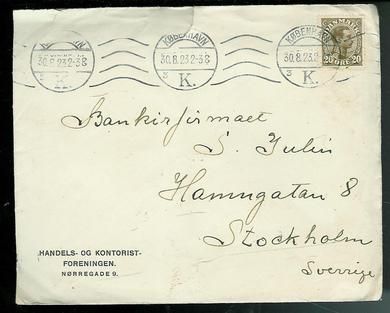 KØBENHAVN
30.8.23.2-3 8
3 K.
KØBENHAVN
30.8.23.2-3 8
3 K.
KØBENHAVN
30.8.23.2-3 8
3 K.
DANMARK
20 ØRE 20
Bankirfirmaet
S. Julin
Hamngatan 8
Stockholm
Sverrige
HANDELS- OG KONTORIST-
FORENINGEN.
NØRREGADE 9.